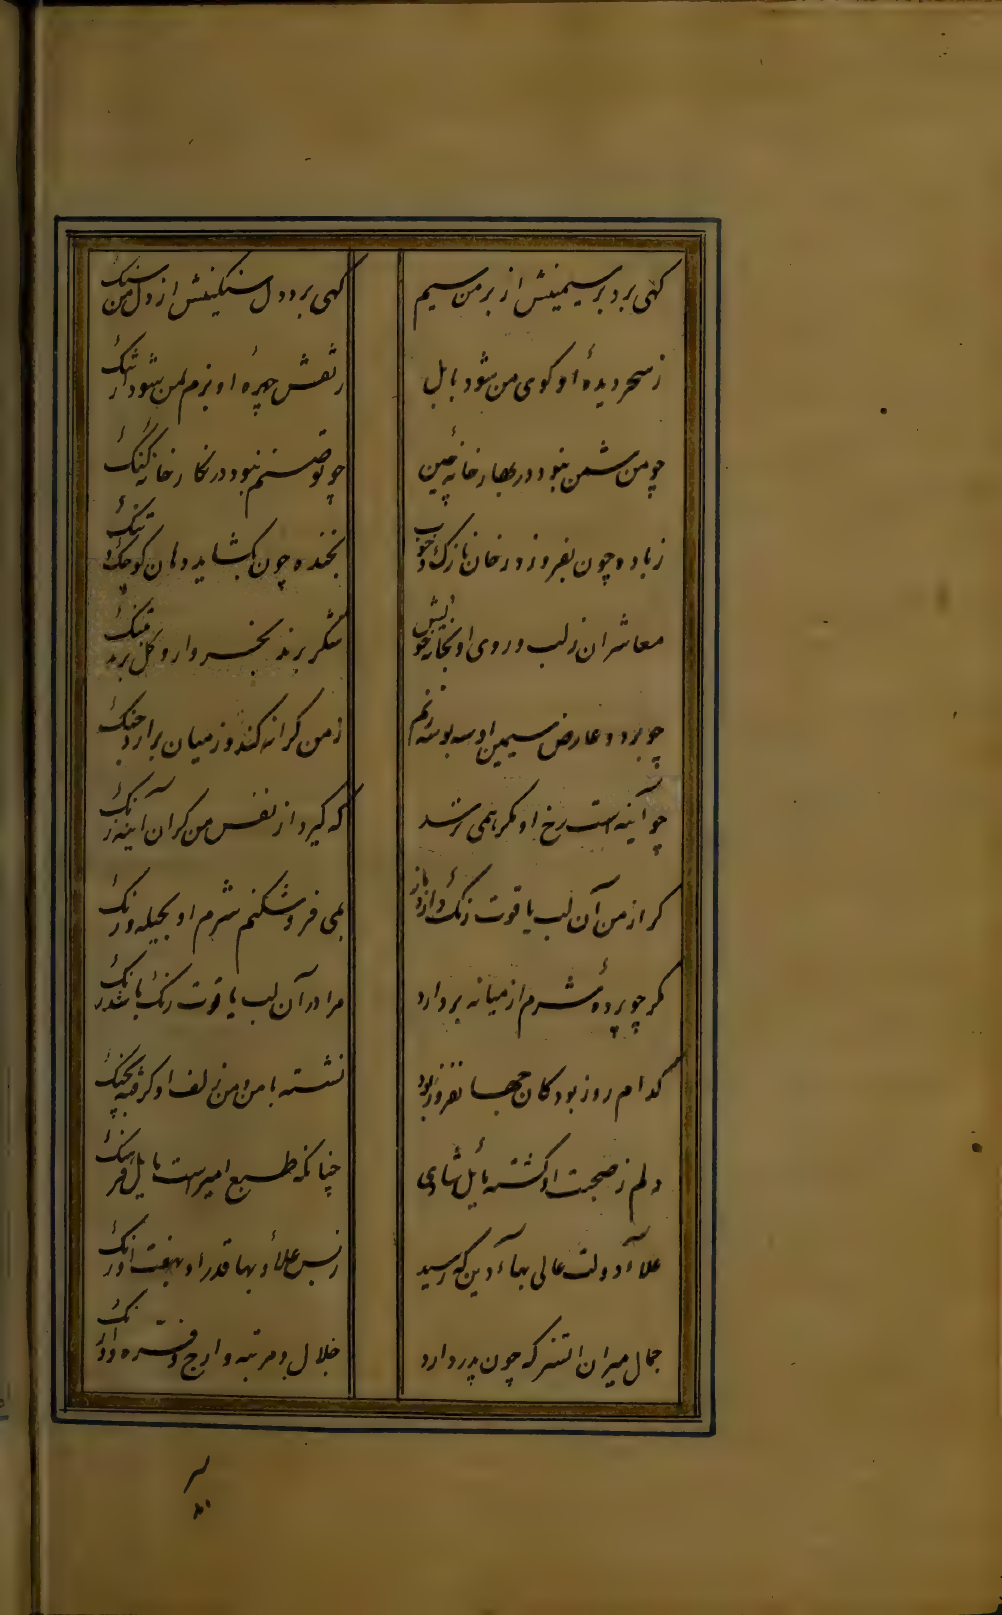 کهی برد بر سیمینش از بر من سیم کهی برد دل سنکینش از دل من سنک
ز سحر دیدهٔ او کوی من شود بابل ز نقش چهرهٔ او بزم من شود ارتنک
چو من شمن نبود در بهار خانهٔ چین چو تو صنم نبود در نکار خانهٔ کنک
ز باده چون بفروزد رخان نازک و خوب بخنده چون بکشاید دهان کوچک و تنک
معاشران ز لب و روی او بخانهٔ خویش شکر برند بخروار و کل برند بتنک
چو بر دو عارض سیمین او سه بوسه زنم ز من کرانه کند وز میان برارد جنک
چو آینه است رخ او مکر همی ترسد که کیرد از نفس من کران آینه زنک
کر از من آن لب یاقوت رنک دارد باز همی فروشکنم شرم او بحیله و رنک
مکر چو پردهٔ شرم از میانه بردارد مرا در آن لب یاقوت رنک باشد رنک
کدام روز بود کان جهانفروز بود نشسته با من و من زلف او کرفته بچنک
دلم ز صحبت او کشته مایل شادی چنانکه طبع امیر است مایل فرهنک
علآء دولت عالی بهآء دین که رسید ز بس علاء و بها قدر او بهفت اورنک
جمال میران اتسز که چون پدر دارد جلال و مرتبه و ارج و فره و اورنک